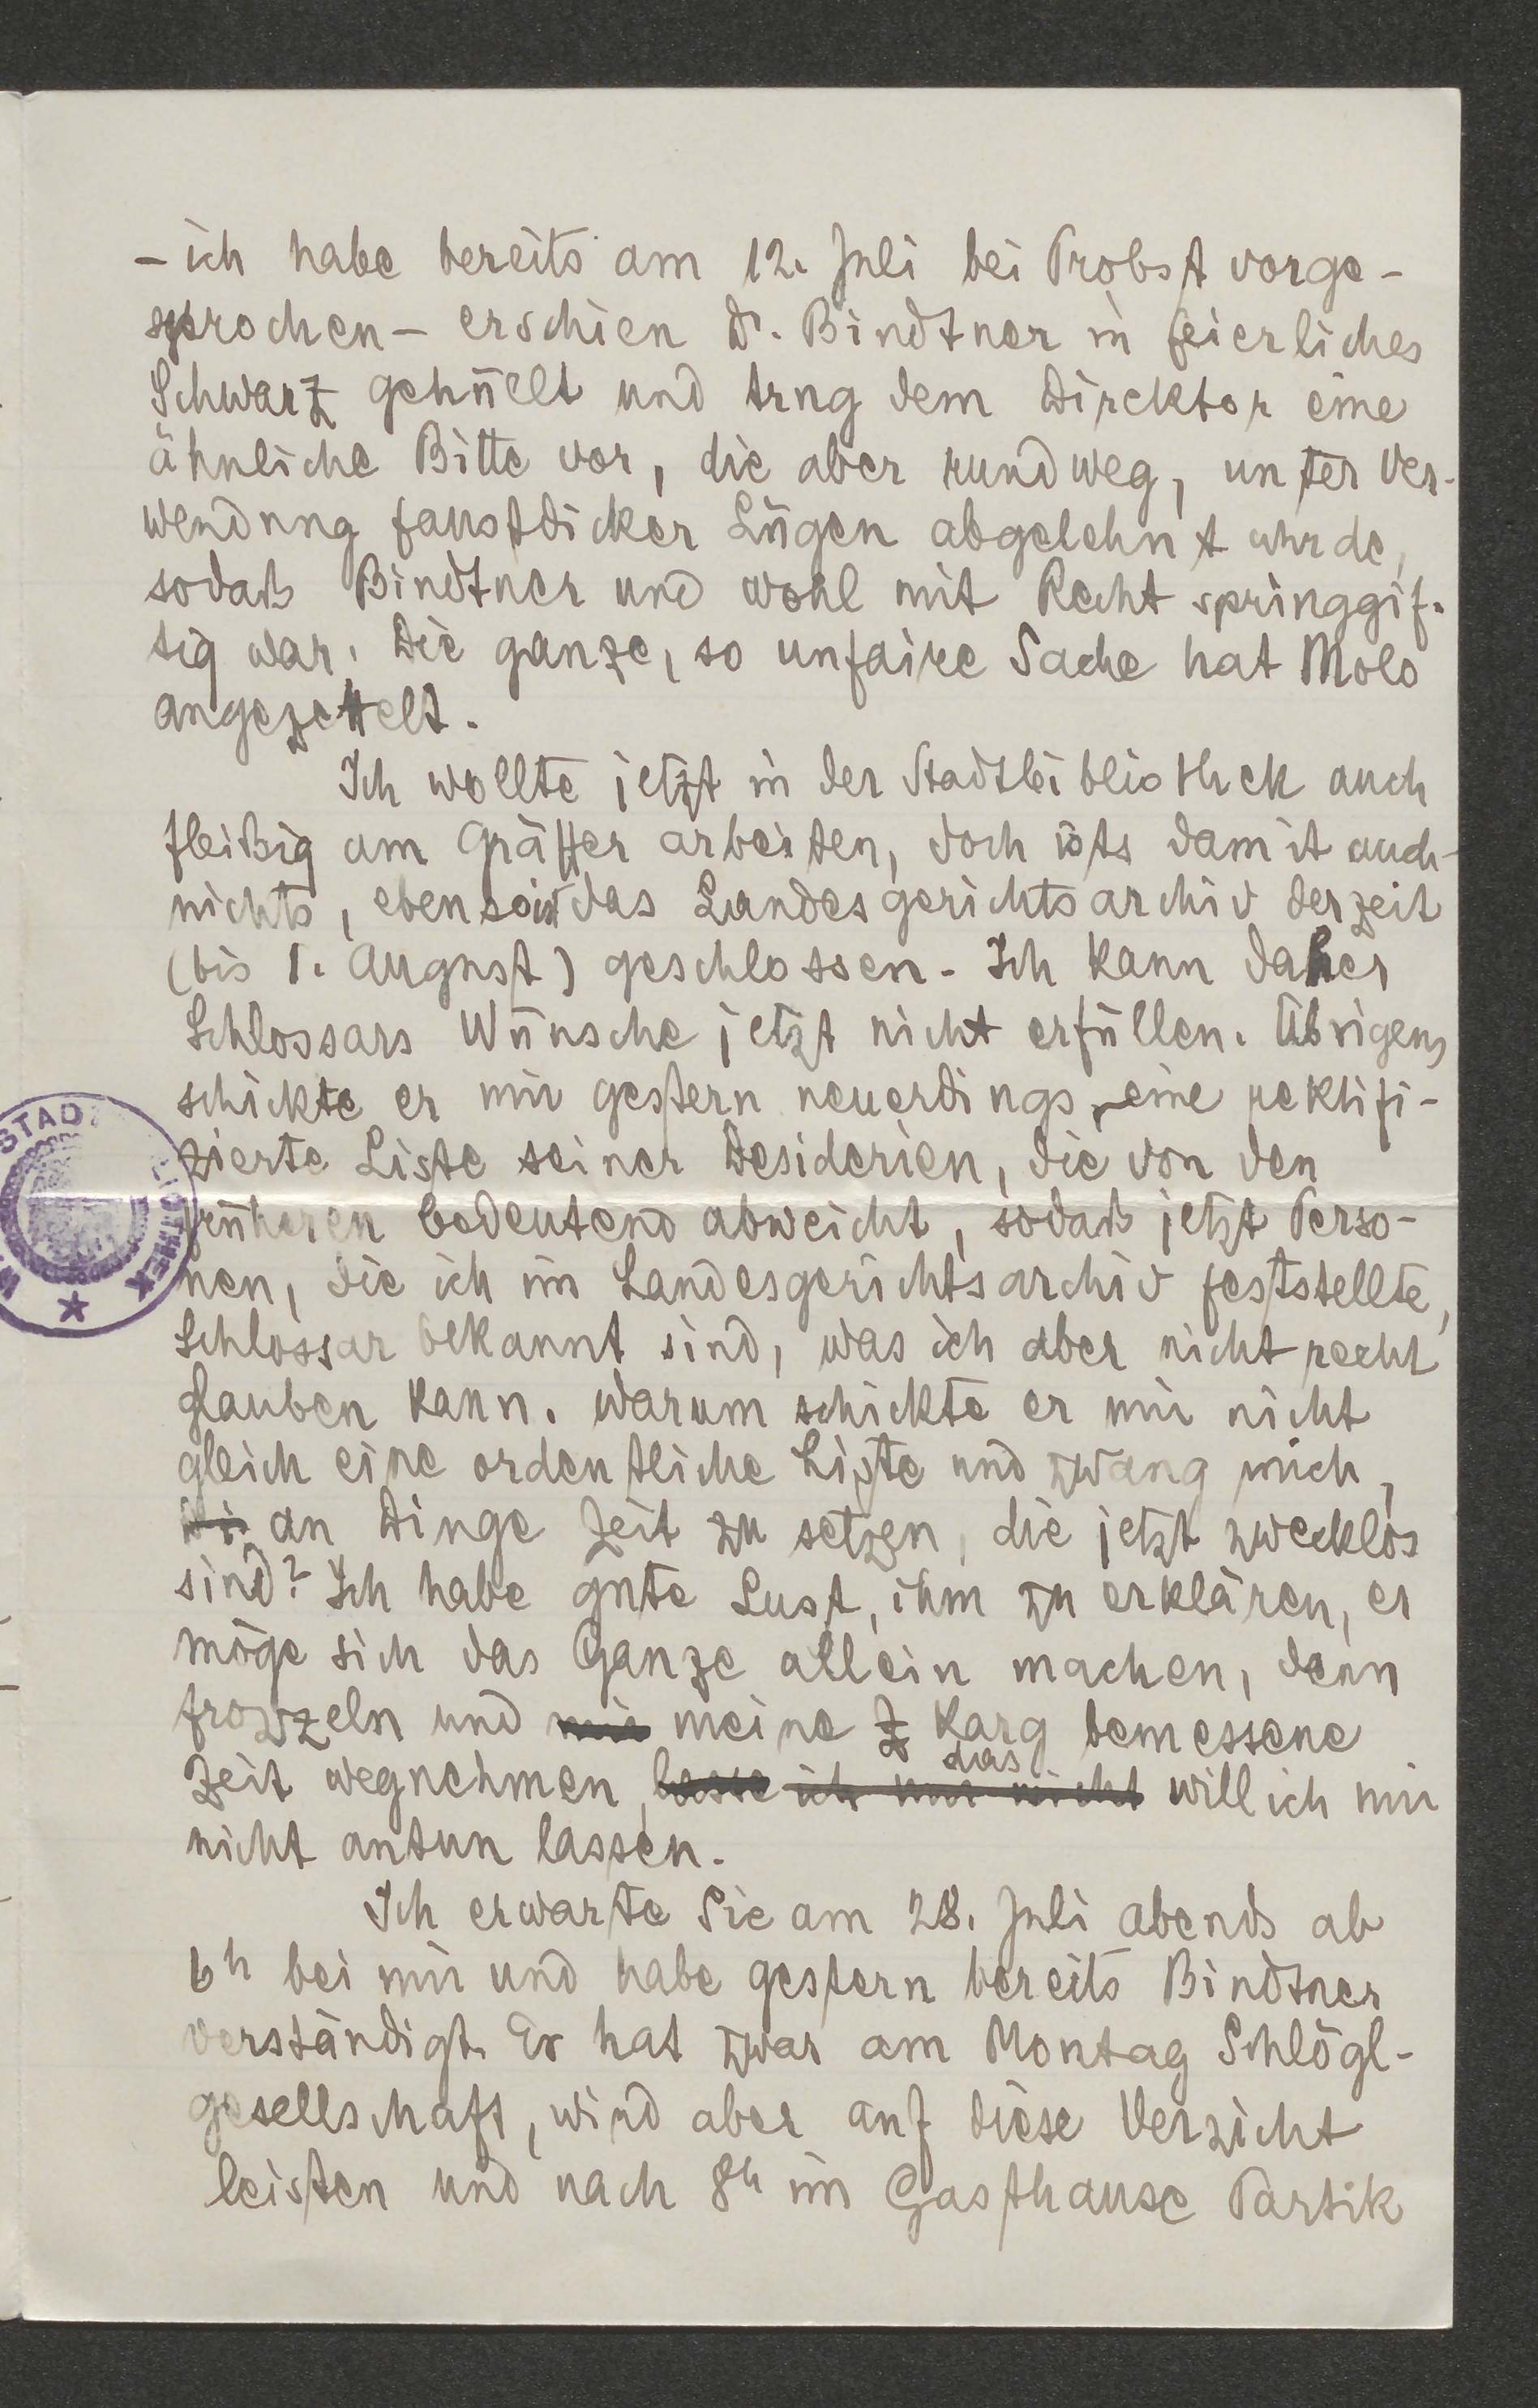 - ich habe bereits am 12. Juli bei Probst vorge-
sprochen - erschien Dr. Bindtner in feierliches
Schwarz gehüllt und trug dem Direktor eine
ähnliche Bitte vor, die aber rundweg, unter Ver-
wendung faustdicker Lügen abgelehnt wurde,
sodaß Bindtner und wohl mit Recht springgif-
tig war. Die ganze, so unfaire Sache hat Molo
angezettelt.
Ich wollte jetzt in der Stadtbibliothek auch
fleißig am Gräffer arbeiten, doch ists damit auch
nichts, ebenso ist das Landesgerichtsarchiv derzeit
(bis 1. August) geschlossen. Ich kann daher
Schlossars Wünsche jetzt nicht erfüllen. Übrigens
schickte er mir gestern neuerdings eine rektifi-
zierte Liste seiner Desiderien, die von den
früheren bedeutend abweicht, sodaß jetzt Perso-
nen, die ich im Landesgerichtsarchiv feststellte,
Schlossar bekannt sind, was ich aber nicht recht
glauben kann. Warum schickte er mir nicht
gleich eine ordentliche Liste und zwang mich,
an Dinge Zeit zu setzen, die jetzt zwecklos
sind? Ich habe gute Lust, ihm zu erklären, er
möge sich das Ganze allein machen, denn
frozzeln und mir meine Z karg bemessene
Zeit wegnehmen, lasse ich mir nicht das will ich mir
nicht antun lassen.
Ich erwarte Sie am 28. Juli abends ab
6h bei mir und habe gestern bereits Bindtner
verständigt. Er hat zwar am Montag Schlögl-
gesellschaft, wird aber auf diese Verzicht
leisten und nach 8h im Gasthause Partik